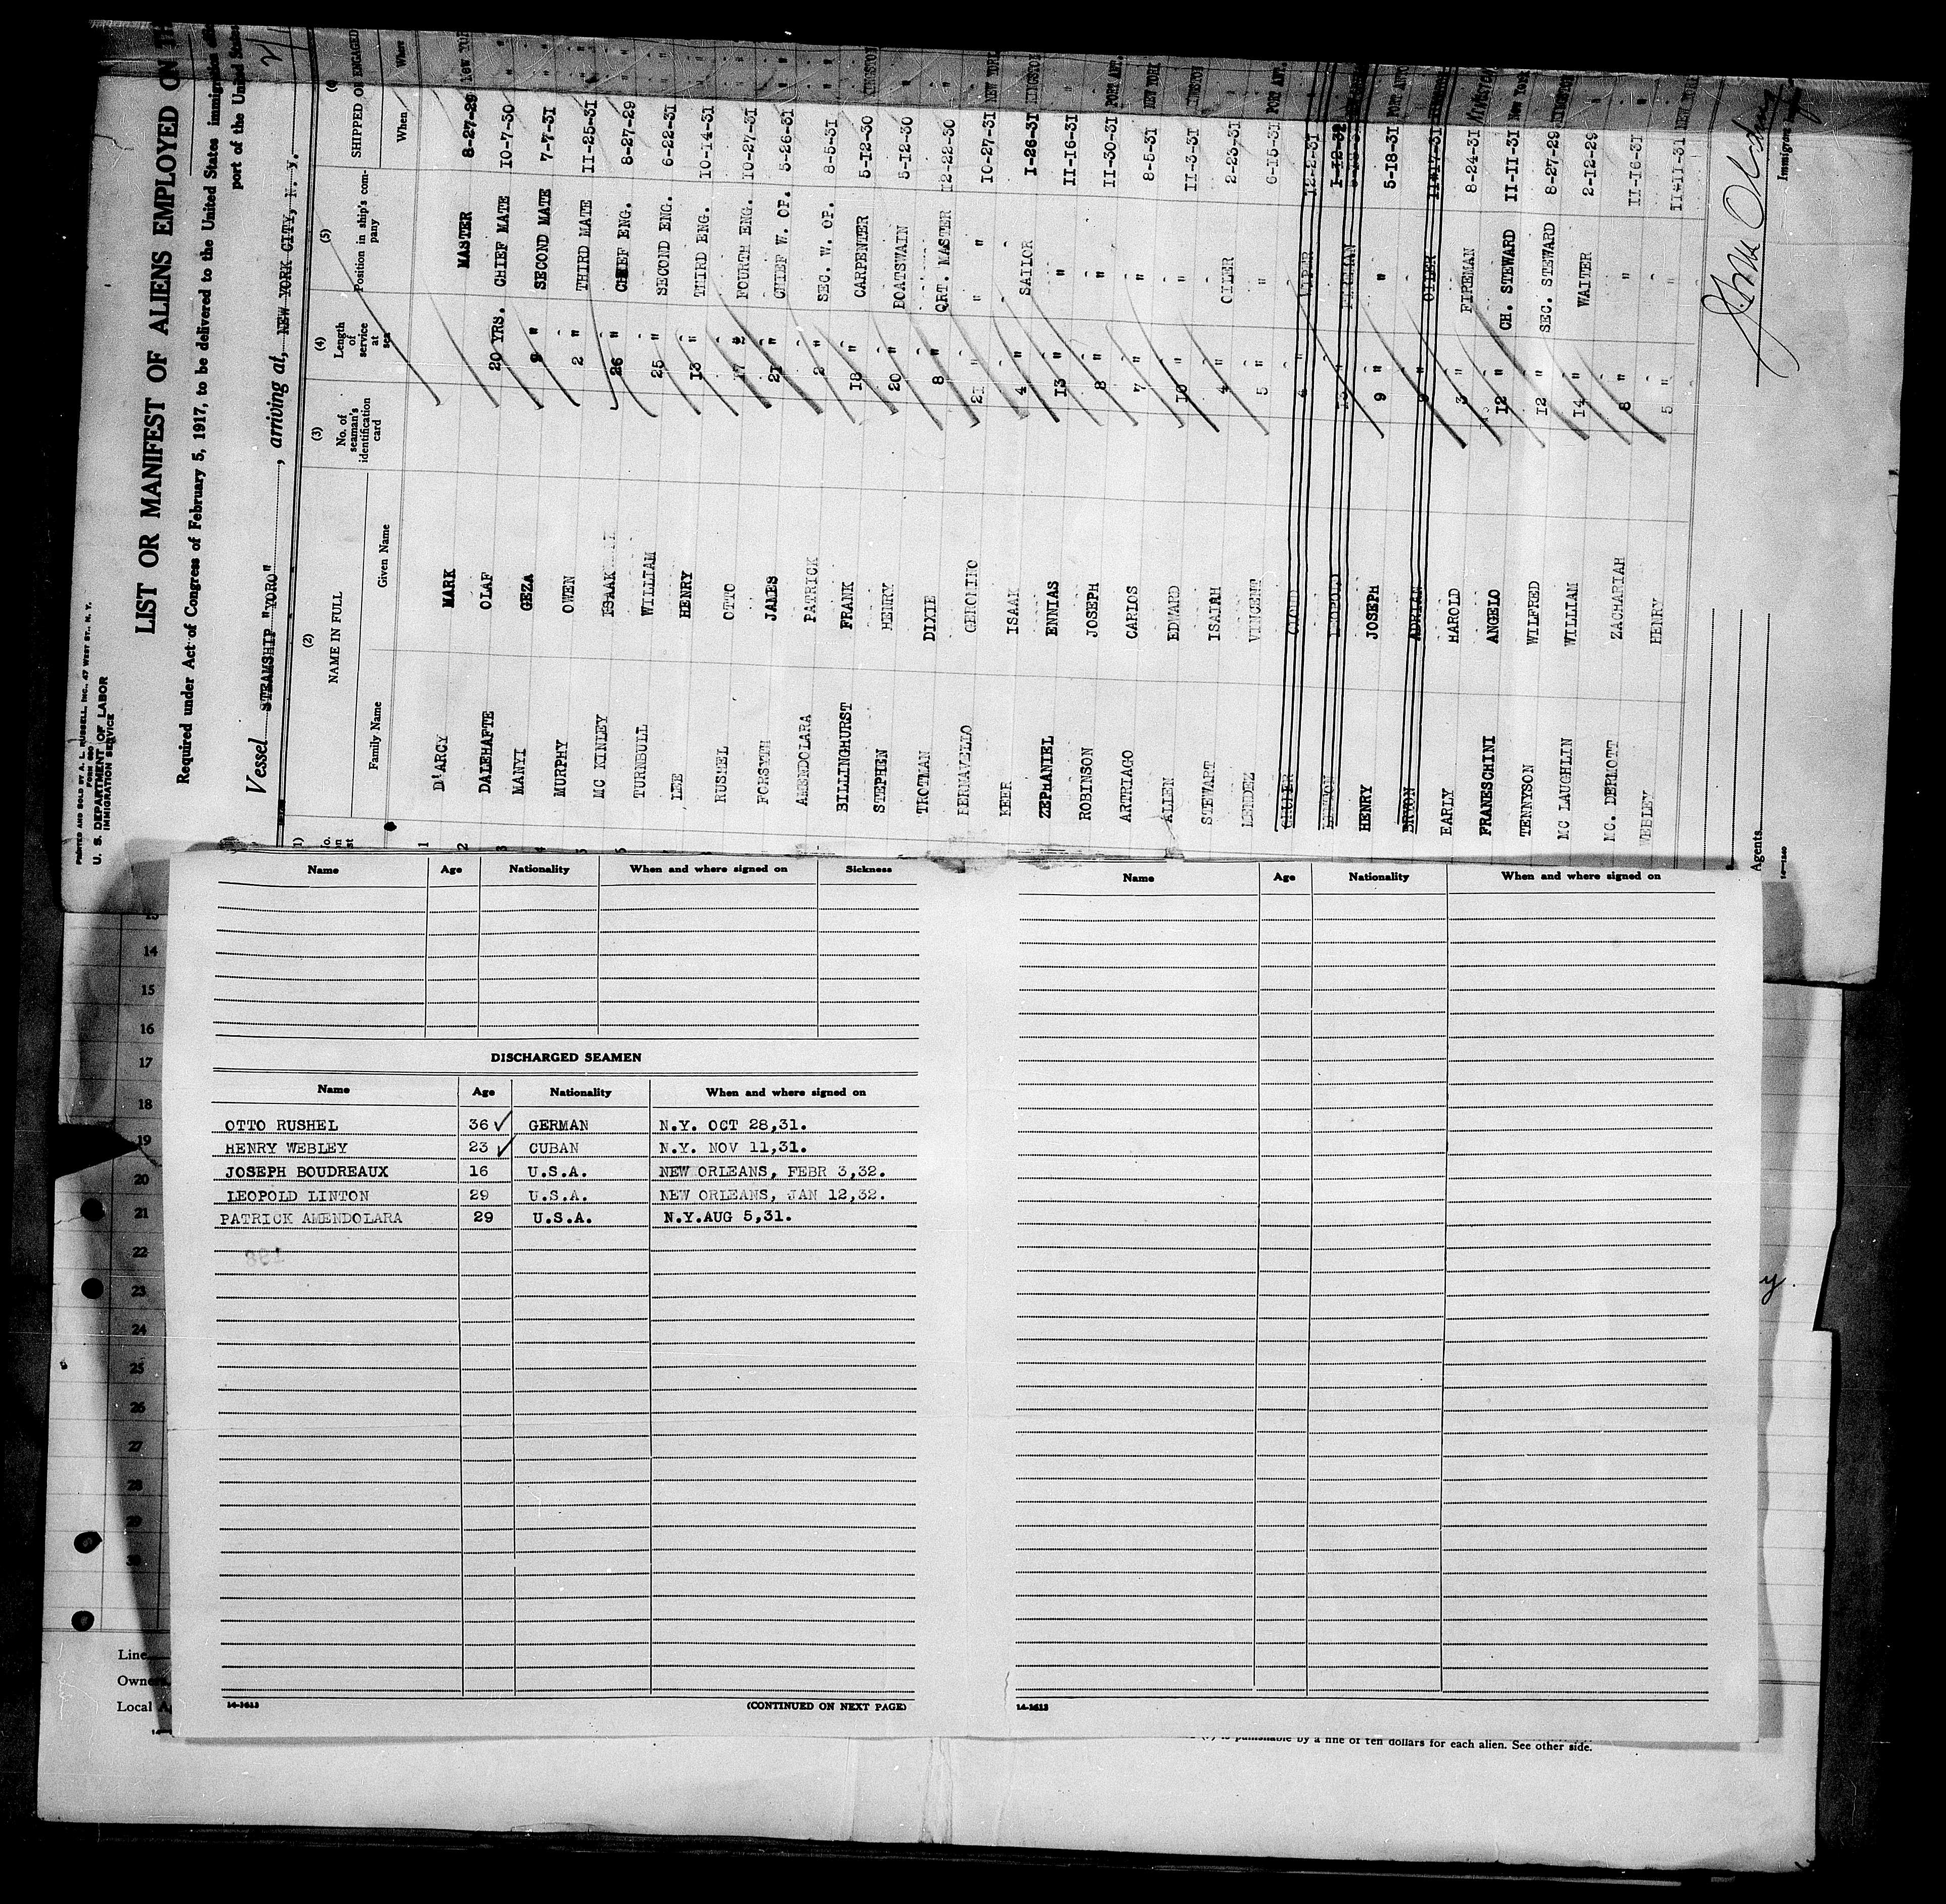 PRINTED AND SOLD BY A. L. RUSSELL, INC., 47 WEST ST., N. Y.
FORM 680
U. S. DEPARTMENT OF LABOR
IMMIGRATION SERVICE
LIST OR MANIFEST OF ALIENS EMPLOYED ON
Required under Act of Congress of February 5, 1917, to be delivered to the United States immigration
port of the United States
Vessel STEAMSHIP "YORO", arriving at, NEW YORK CITY, N. Y.
(2) (3) (4) (5) (6)
NAME IN FULL
Family Name Given Name
No. of seaman's identification card
Length of service at sea
Position in ship's company
SHIPPED OR ENGAGED
When Where
1 D'ARCY MARK MASTER 8-27-29 New YOR
2 DALEHAFTE OLAF 20 YRS. CHIEF MATE 10-7-30 "
3 MANYI GEZA 9 " SECOND MATE 7-7-31 "
4 MURPHY OWEN 2 " THIRD MATE 11-25-31 "
5 MC KINLEY ISAAK 26 " CHIEF ENG. 8-27-29 "
TURNBULL WILLIAM 25 " SECOND ENG. 6-22-31 "
LEE HENRY 13 " THIRD ENG. 10-14-31 "
RUSHEL OTTO 17 " FOURTH ENG. 10-27-31 "
FORSYTH JAMES 21 " CHIEF W. OP. 5-26-31 "
AMENDOLARA PATRICK 2 " SEC. W. OP. 8-5-31 "
BILLINGHURST FRANK 18 " CARPENTER 5-12-30 KINGSTON
STEPHEN HENRY 20 " BOATSWAIN 5-12-30 "
TROTMAN DIXIE 8 " QRT. MASTER 12-22-30 "
BERNAVELLO GERONIMO 21 " " 10-27-31 NEW YORK
KEER ISAAK 4 " SAILOR 1-26-31 KINGSTON
ZEPHANIEL ENNIAS 13 " " 11-16-31 "
ROBINSON JOSEPH 8 " " 11-30-31 PORT ANT.
ARTRIAGO CARLOS 7 " " 8-5-31 NEW YORK
ALLEN EDWARD 10 " " 11-3-31 KINGSTON
STEWART ISAIAH 4 " OILER 2-23-31 "
MENDEZ VINCENT 5 " " 6-15-31 PORT ANT.
CLOUD 6 " WIPER 12-2-31 "
LINTON LEOPOLD " FIREMAN 1-12-32
HENRY JOSEPH 9 " " 5-18-31 PORT ANTO
BRYON ADRIAN 9 " OILER 11-17-31
EARLY HAROLD 3 " FIREMAN 8-24-31
FRANESCHINI ANGELO 12 " CH. STEWARD 11-11-31 New York
TENNYSON WILFRED 12 " SEC. STEWARD 8-27-29 KINGSTON
MC LAUGHLIN WILLIAM 14 " WAITER 2-12-29 "
MC. DERMOTT ZACHARIAH 8 " " 11-16-31 "
WEBLEY HENRY 5 " " 11-11-31 NEW YORK
Agents
Immigrant
14—1240
Name Age Nationality When and where signed on Sickness
DISCHARGED SEAMEN
Name Age Nationality When and where signed on
OTTO RUSHEL 36 GERMAN N.Y. OCT 28,31.
HENRY WEBLEY 23 CUBAN N.Y. NOV 11,31.
JOSEPH BOUDREAUX 16 U.S.A. NEW ORLEANS, FEBR 3,32.
LEOPOLD LINTON 29 U.S.A. NEW ORLEANS, JAN 12,32.
PATRICK AMENDOLARA 29 U.S.A. N.Y.AUG 5,31.
14-1613 (CONTINUED ON NEXT PAGE)
Name Age Nationality When and where signed on
14-1613
13
14
15
16
17
18
19
20
21
22
23
24
25
26
27
28
29
30
Line
Owner
Local A
is punishable by a fine of ten dollars for each alien. See other side.